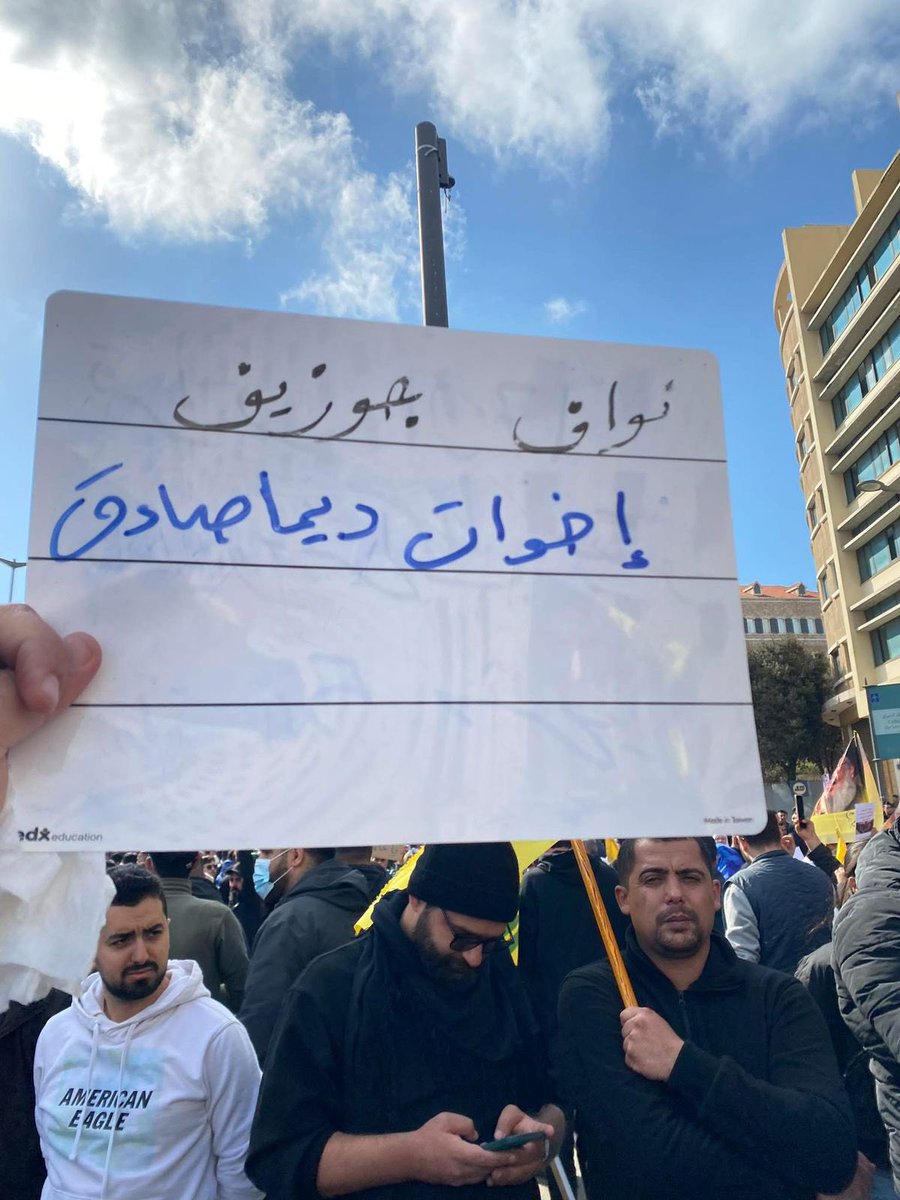 نواف بجوزيف
إخوات ديما صادق
edx education
Made in Taiwan
AMERICAN
EAGLE